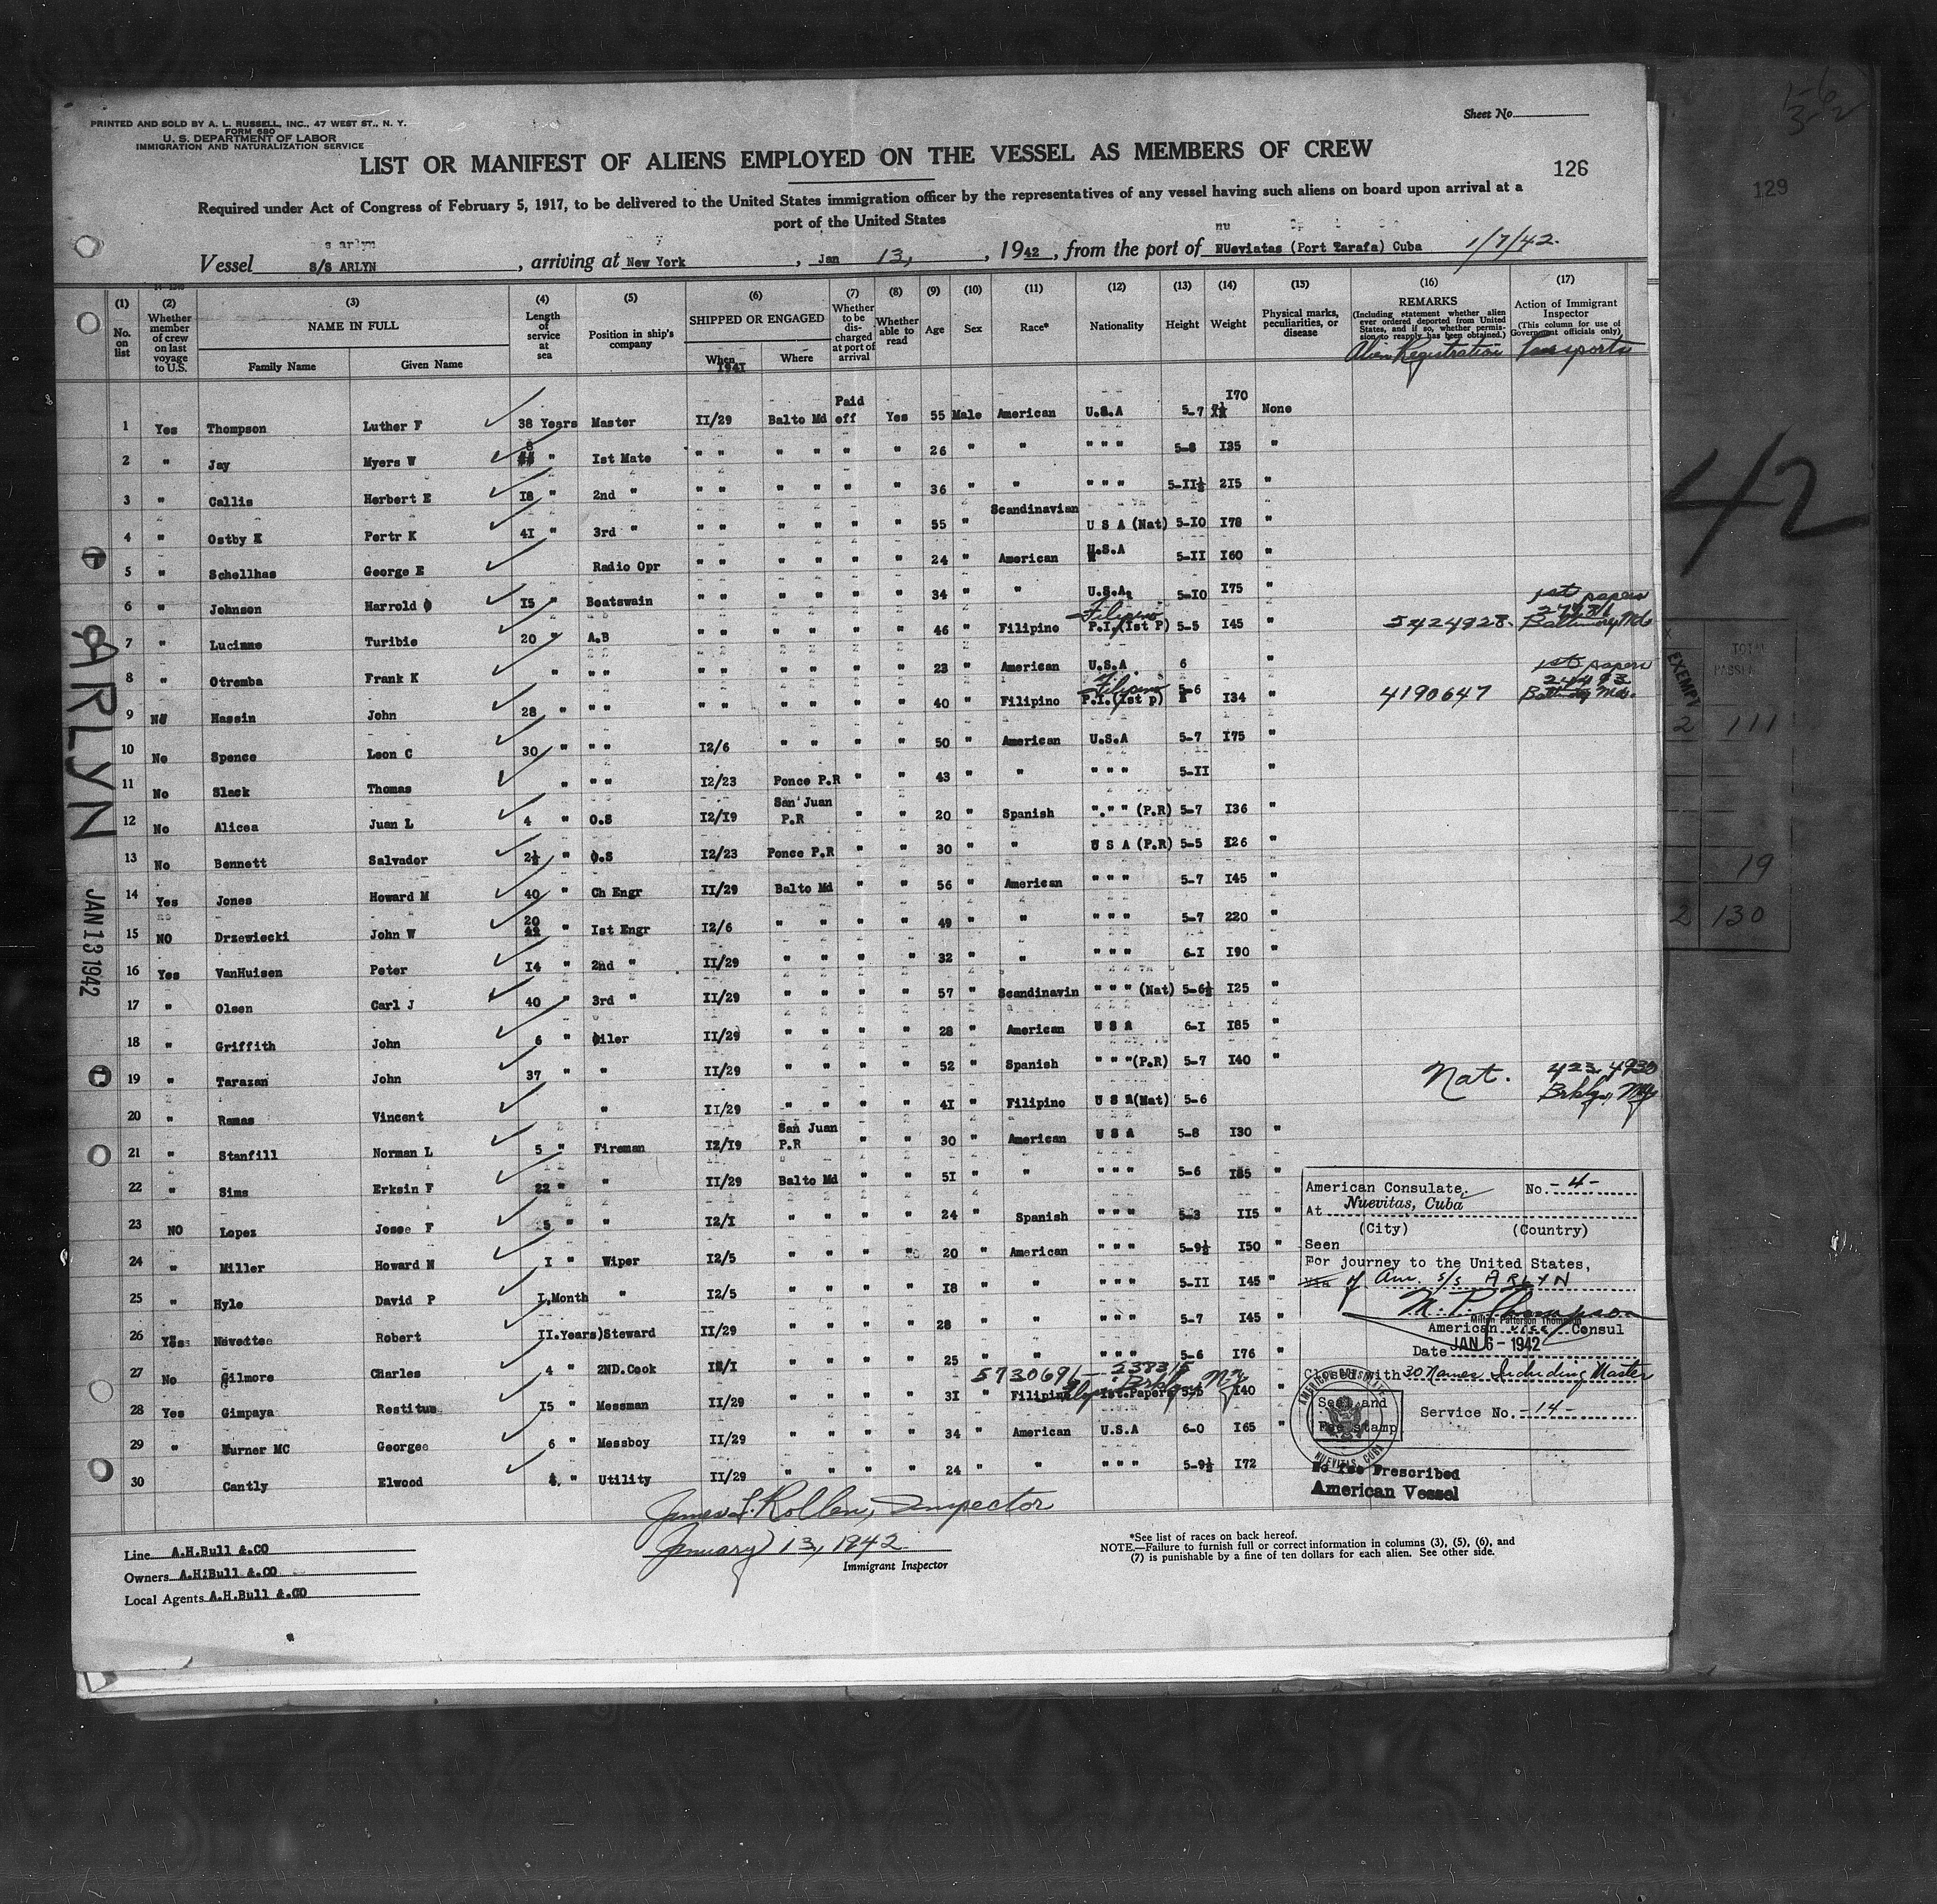 PRINTED AND SOLD BY A. L. RUSSELL, INC., 47 WEST ST., N. Y.
FORM 680
U. S. DEPARTMENT OF LABOR
IMMIGRATION AND NATURALIZATION SERVICE
Sheet No.
LIST OR MANIFEST OF ALIENS EMPLOYED ON THE VESSEL AS MEMBERS OF CREW
126
129
Required under Act of Congress of February 5, 1917, to be delivered to the United States immigration officer by the representatives of any vessel having such aliens on board upon arrival at a
port of the United States
Vessel S/S ARLYN, arriving at New York, Jan 13, 1942, from the port of NUeviatas (Port Tarafa) Cuba 1/7/42.
(1) No. on list
(2) Whether member of crew on last voyage to U.S.
(3) NAME IN FULL Family Name Given Name
(4) Length of service at sea
(5) Position in ship's company
(6) SHIPPED OR ENGAGED When 1941 Where
(7) Whether to be discharged at port of arrival
(8) Whether able to read
(9) Age
(10) Sex
(11) Race*
(12) Nationality
(13) Height
(14) Weight
(15) Physical marks, peculiarities, or disease
(16) REMARKS (Including statement whether alien ever ordered deported from United States, and if so, whether permission to reapply has been obtained.) Alien Registration
(17) Action of Immigrant Inspector (This column for use of Government officials only) Passports
1 Yes Thompson Luther F 38 Years Master II/29 Balto Md Paid off Yes 55 Male American U.S.A 5-7 I70 None
2 " Jay Myers W 8 " Ist Mate " " " " " " 26 " " " " " 5-8 I35 "
3 " Callis Herbert E I8 " 2nd " " " " " " " 36 " " " " " 5-II½ 2I5 "
4 " Ostby K Pertr K 4I " 3rd " " " " " " " 55 " Scandinavian U S A (Nat) 5-I0 I78 "
5 " Schellhas George E Radio Opr " " " " " " 24 " American U.S.A 5-II I60 "
6 " Johnson Harrold I5 " Boatswain " " " " " " 34 " " U.S.A. 5-I0 I75 "
7 " Lucinne Turibie 20 " A.B " " " " " " 46 " Filipino Filipino P.I.(Ist P) 5-5 I45 " 5424928 1st papers 27981 Baltimore, Md.
8 " Otremba Frank K " " " " " " " " " 23 " American U.S.A 6 "
9 NO Hassin John 28 " " " " " " " " " 40 " Filipino Filipino P.I.(Ist p) 5-6 I34 " 4190647 1st papers 24493 Baltimore Md.
10 No Spence Leon C 30 " " " I2/6 " " " " 50 " American U.S.A 5-7 I75 "
11 No Slack Thomas " " " I2/23 Ponce P.R " " 43 " " " " " 5-II "
12 No Alicea Juan L 4 " O.S I2/I9 San Juan P.R " " 20 " Spanish " " " (P.R) 5-7 I36 "
13 No Bennett Salvador 2½ " O.S I2/23 Ponce P.R " " 30 " " U S A (P.R) 5-5 I26 "
14 Yes Jones Howard M 40 " Ch Engr II/29 Balto Md " " 56 " American " " " 5-7 I45 "
15 NO Drzewiecki John W 20 " Ist Engr I2/6 " " " " 49 " " " " " 5-7 220 "
16 Yes VanHuisen Peter I4 " 2nd " II/29 " " " " 32 " " " " " 6-I I90 "
17 " Olsen Carl J 40 " 3rd " II/29 " " " " 57 " Scandinavin " " " (Nat) 5-6½ I25 "
18 " Griffith John 6 " Oiler II/29 " " " " 28 " American U S A 6-I I85 "
19 " Tarazan John 37 " " II/29 " " " " 52 " Spanish " " "(P.R) 5-7 I40 "
20 " Ramas Vincent " II/29 " " " " 4I " Filipino U S A(Nat) 5-6 Nat. 423,4930 Brklyn, NY
21 " Stanfill Norman L 5 " Fireman I2/I9 San Juan P.R " " 30 " American U S A 5-8 I30 "
22 " Sims Erksin F 22 " " II/29 Balto Md " " 5I " " " " " 5-6 I85 "
23 NO Lopez Josee F 5 " " I2/I " " " " 24 " Spanish " " " 5-3 II5 "
24 " Miller Howard N I " Wiper I2/5 " " " " 20 " American " " " 5-9½ I50 "
25 " Hyle David P I.Month " I2/5 " " " " I8 " " " " " 5-II I45 "
26 Yes Nevettee Robert II.Years)Steward II/29 " " " " 28 " " " " 5-7 I45 "
27 No Gilmore Charles 4 " 2ND.Cook I2/I " " " " 25 " " " " " 5-6 I76 "
28 Yes Gimpaya Restitus I5 " Messman II/29 " " " " 3I " Filipino Ist.Papers 5-5 I40 5730691 – 238315 Brklyn NY
29 " Murner MC Georgee 6 " Messboy II/29 " " " " 34 " American U.S.A 6-0 I65 "
30 Cantly Elwood 4. " Utility II/29 " " " " 24 " " " " " 5-9½ I72
American Consulate, No. -4-
At Nuevitas, Cuba
(City) (Country)
Seen
For journey to the United States,
via of Am. s/s ARLYN
M. P. Thompson
Milton Patterson Thompson
American Vice Consul
Date JAN 6 - 1942
Closed with 30 Names Including Master
Seal and
Fee Stamp
Service No. -14-
AMERICAN CONSULATE
NUEVITAS, CUBA
No Fee Prescribed
American Vessel
James F. Rollen, Inspector
January 13, 1942.
Immigrant Inspector
Line A.H.Bull &.CO
Owners A.H.Bull &.CO
Local Agents A.H.Bull &.CO
*See list of races on back hereof.
NOTE.—Failure to furnish full or correct information in columns (3), (5), (6), and
(7) is punishable by a fine of ten dollars for each alien. See other side.
ARLYN
JAN 13 1942
42
EXEMPT
TOTAL
2 111
19
2 130